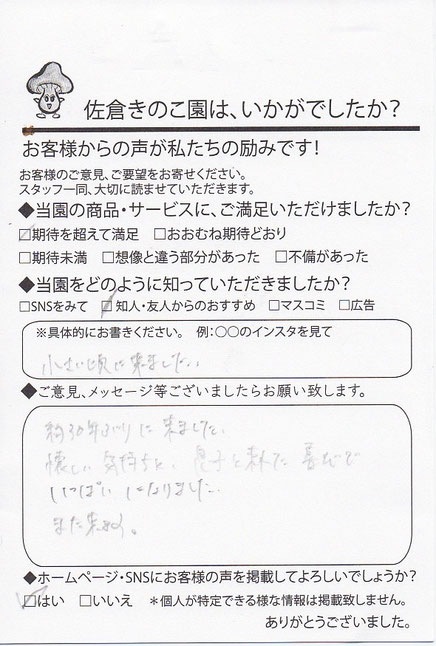 佐倉きのこ園は、いかがでしたか？
お客様からの声が私たちの励みです！
お客様のご意見、ご要望をお寄せください。
スタッフ一同、大切に読ませていただきます。
◆当園の商品・サービスに、ご満足いただけましたか？
☑期待を超えて満足 □おおむね期待どおり
□期待未満 □想像と違う部分があった □不備があった
◆当園をどのように知っていただきましたか？
□SNSをみて ☑知人・友人からのおすすめ □マスコミ □広告
※具体的にお書きください。 例：○○のインスタを見て
小さい頃に来ました。
◆ご意見、メッセージ等ございましたらお願い致します。
約30年ぶりに来ました。
懐しい気持ちと、息子と来れた喜びで
いっぱいになりました。
また来ます。
◆ホームページ・SNSにお客様の声を掲載してよろしいでしょうか？
☑はい □いいえ ＊個人が特定できる様な情報は掲載致しません。
ありがとうございました。